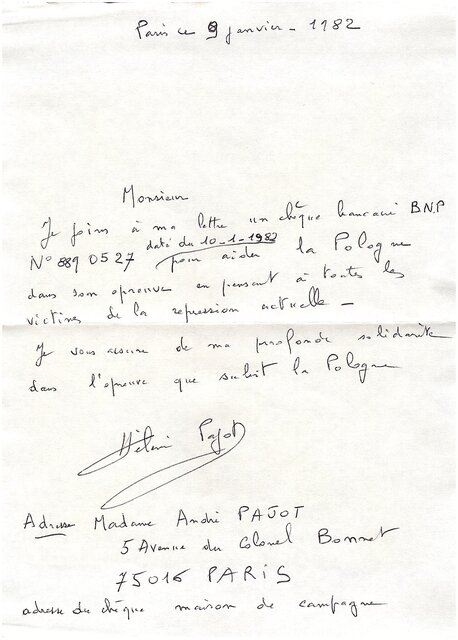 Paris ce 9 janvier - 1982
Monsieur
Je joins à ma lettre un chèque bancaire B.N.P
N° 889 05 27 daté du 10-1-1982 pour aider la Pologne
dans son épreuve en pensant à toutes les
victimes de la repression actuelle -
Je vous assure de ma profonde solidarité
dans l'épreuve que subit la Pologne
Hélène Pajot
Adresse Madame André PAJOT
5 Avenue du Colonel Bonnet
75016 PARIS
adresse du chèque maison de campagne